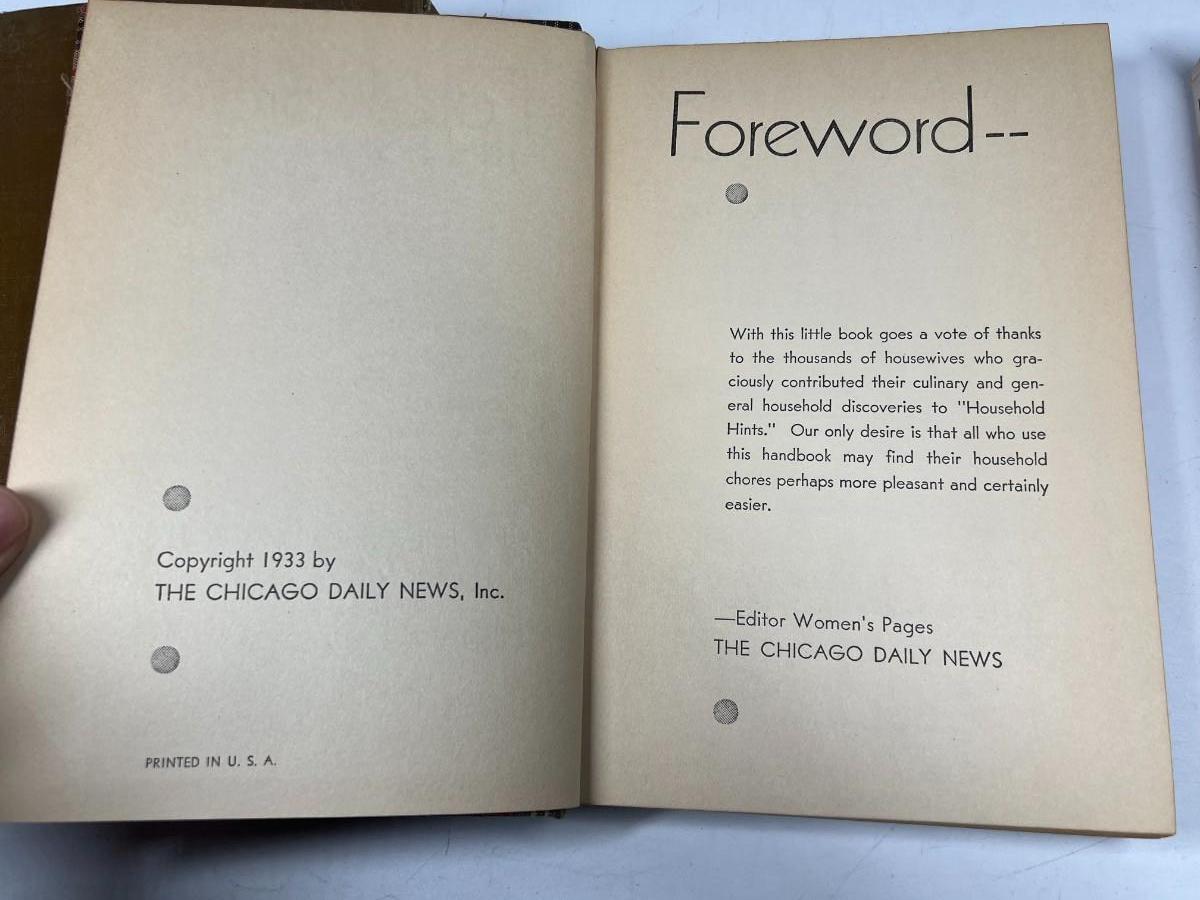 Copyright 1933 by
THE CHICAGO DAILY NEWS, Inc.
PRINTED IN U. S. A.
Foreword--
With this little book goes a vote of thanks
to the thousands of housewives who gra-
ciously contributed their culinary and gen-
eral household discoveries to "Household
Hints." Our only desire is that all who use
this handbook may find their household
chores perhaps more pleasant and certainly
easier.
—Editor Women's Pages
THE CHICAGO DAILY NEWS